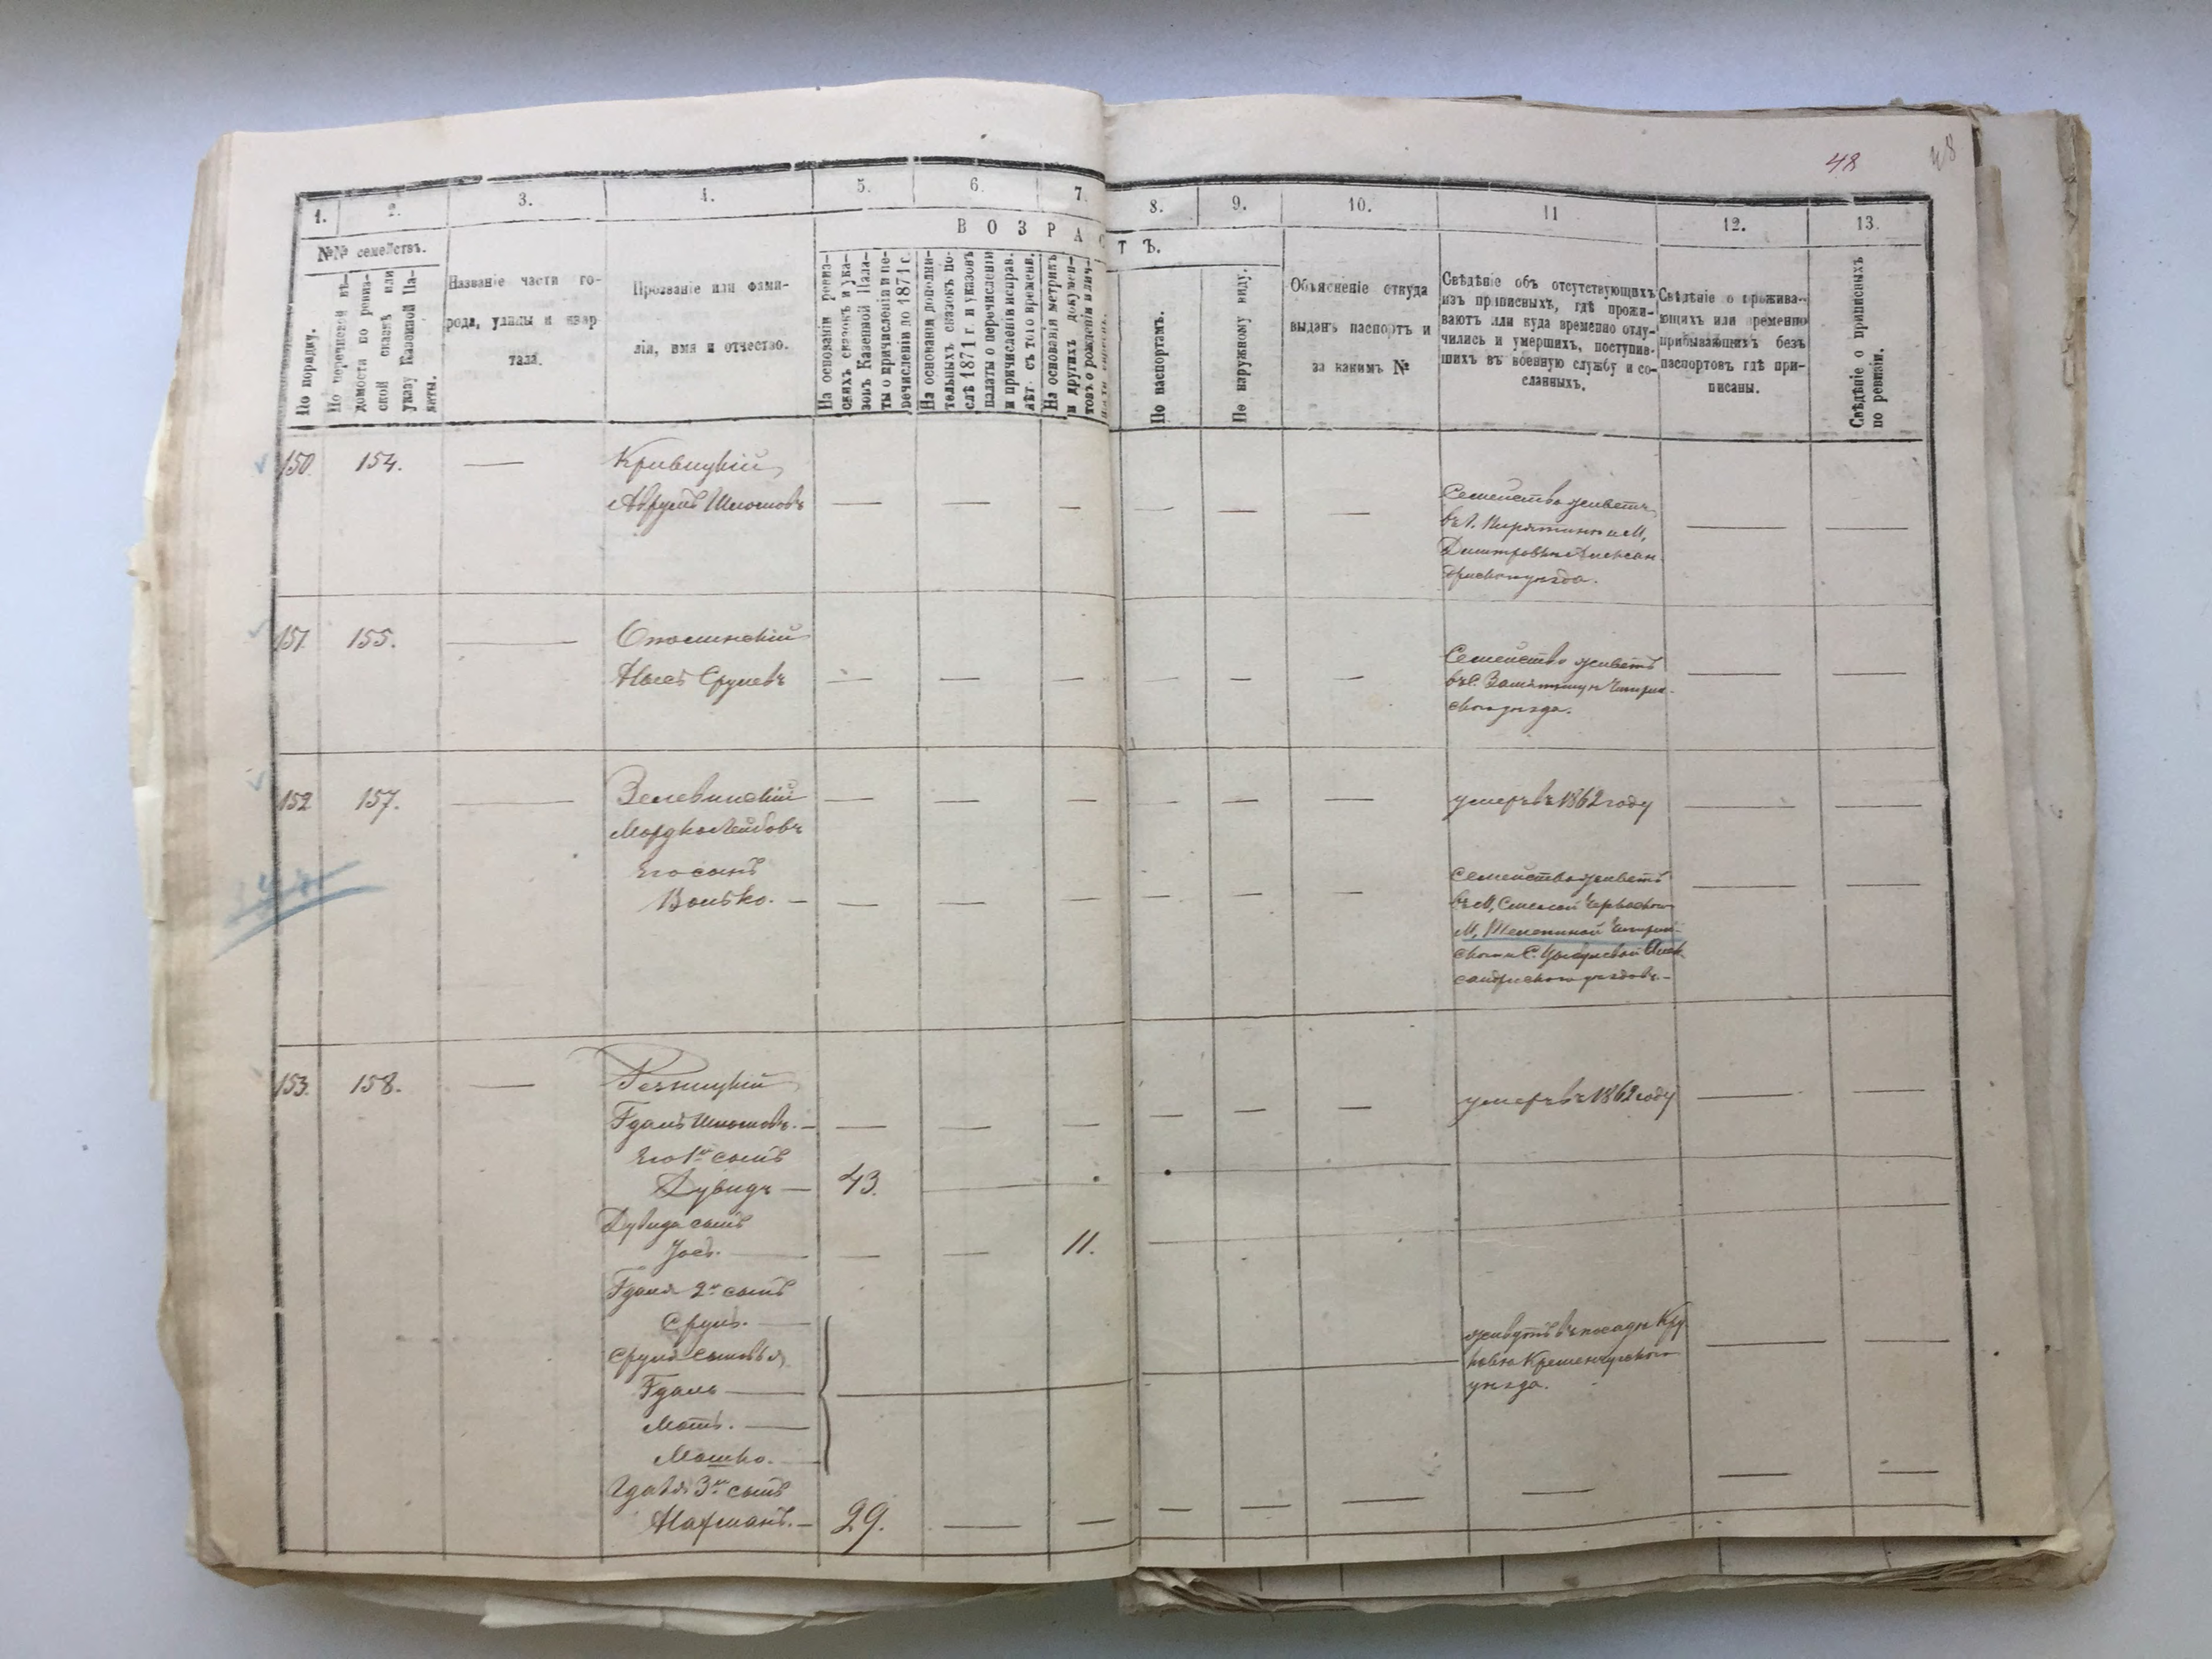 48
48
1.
2.
3.
4.
5.
6.
7.
8.
9.
10.
11
12.
13.
№№ семействъ.
ВОЗРАСТЪ.
По порядку.
По перечневой вѣ-
домости по ревиз-
ской сказкѣ или
указу Казенной Па-
латы.
Названіе части го-
рода, улицы и квар
тала.
Прозваніе или фами-
лія, имя и отчество.
На основаніи ревиз-
скихъ сказокъ и ука-
зовъ Казенной Пала-
ты о причисленіи и пе-
речисленіи до 1871 г.
На основаніи дополни-
тельныхъ сказокъ по-
слѣ 1871 г. и указовъ
палаты о перечисленіи
и причисленіи исправ.
лѣт. съ того времени.
На основаніи метрикъ
и другихъ докумен-
товъ о рожденіи и лич-
По паспортамъ.
По наружному виду.
Объясненіе откуда
выданъ паспортъ и
за какимъ №
Свѣдѣніе объ отсутствующихъ
изъ приписныхъ, гдѣ прожи-
ваютъ или куда временно отлу-
чились и умершихъ, поступив-
шихъ въ военную службу и со-
сланныхъ.
Свѣдѣніе о прожива-
ющихъ или временно
прибывающихъ безъ
паспортовъ гдѣ при-
писаны.
Свѣдѣніе о приписныхъ
по ревизіи.
150. 154. — Кривицкій
Аврумъ Шлiомовъ — — — — — —
Семейство живетъ
въ г. Пирятинѣ и М.
Дмитровкѣ Алексан-
дрійскаго уѣзда.
151. 155. —
Срулевъ — — — — — —
Семейство живетъ
въ С. Замятницѣ Чигрин-
скаго уѣзда.
152. 157. —
Мордко Лейбовъ
умеръ въ 1862 году
Его сынъ
Волько. —
Семейство живетъ
въ М. Смѣлой Черкаскаго
М. Телепиной Чигрин-
скаго и С. Цыбулевой Алек-
сандрійскаго уѣздовъ. —
153. 158. — Резницкій
Гдаль Шлiомовъ. — — — — — — —
умеръ въ 1862 году
Его 1й сынъ
Дувидъ — 43.
Дувида сынъ
Іось. — — — 11.
Гдаля 2й сынъ
Сруль. —
Сруля сыновья
Гдаль —
Моть. —
Мошко. —
живутъ въ посадѣ Крю
ковѣ Кременчугскаго
уѣзда.
Гдаля 3й сынъ
Нахманъ. — 29. — — — — — —